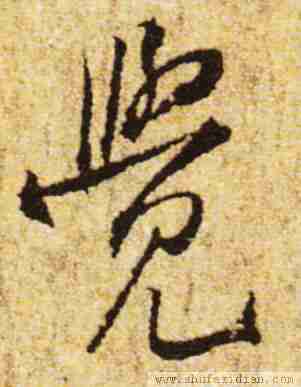 覺
www.shufazidian.com